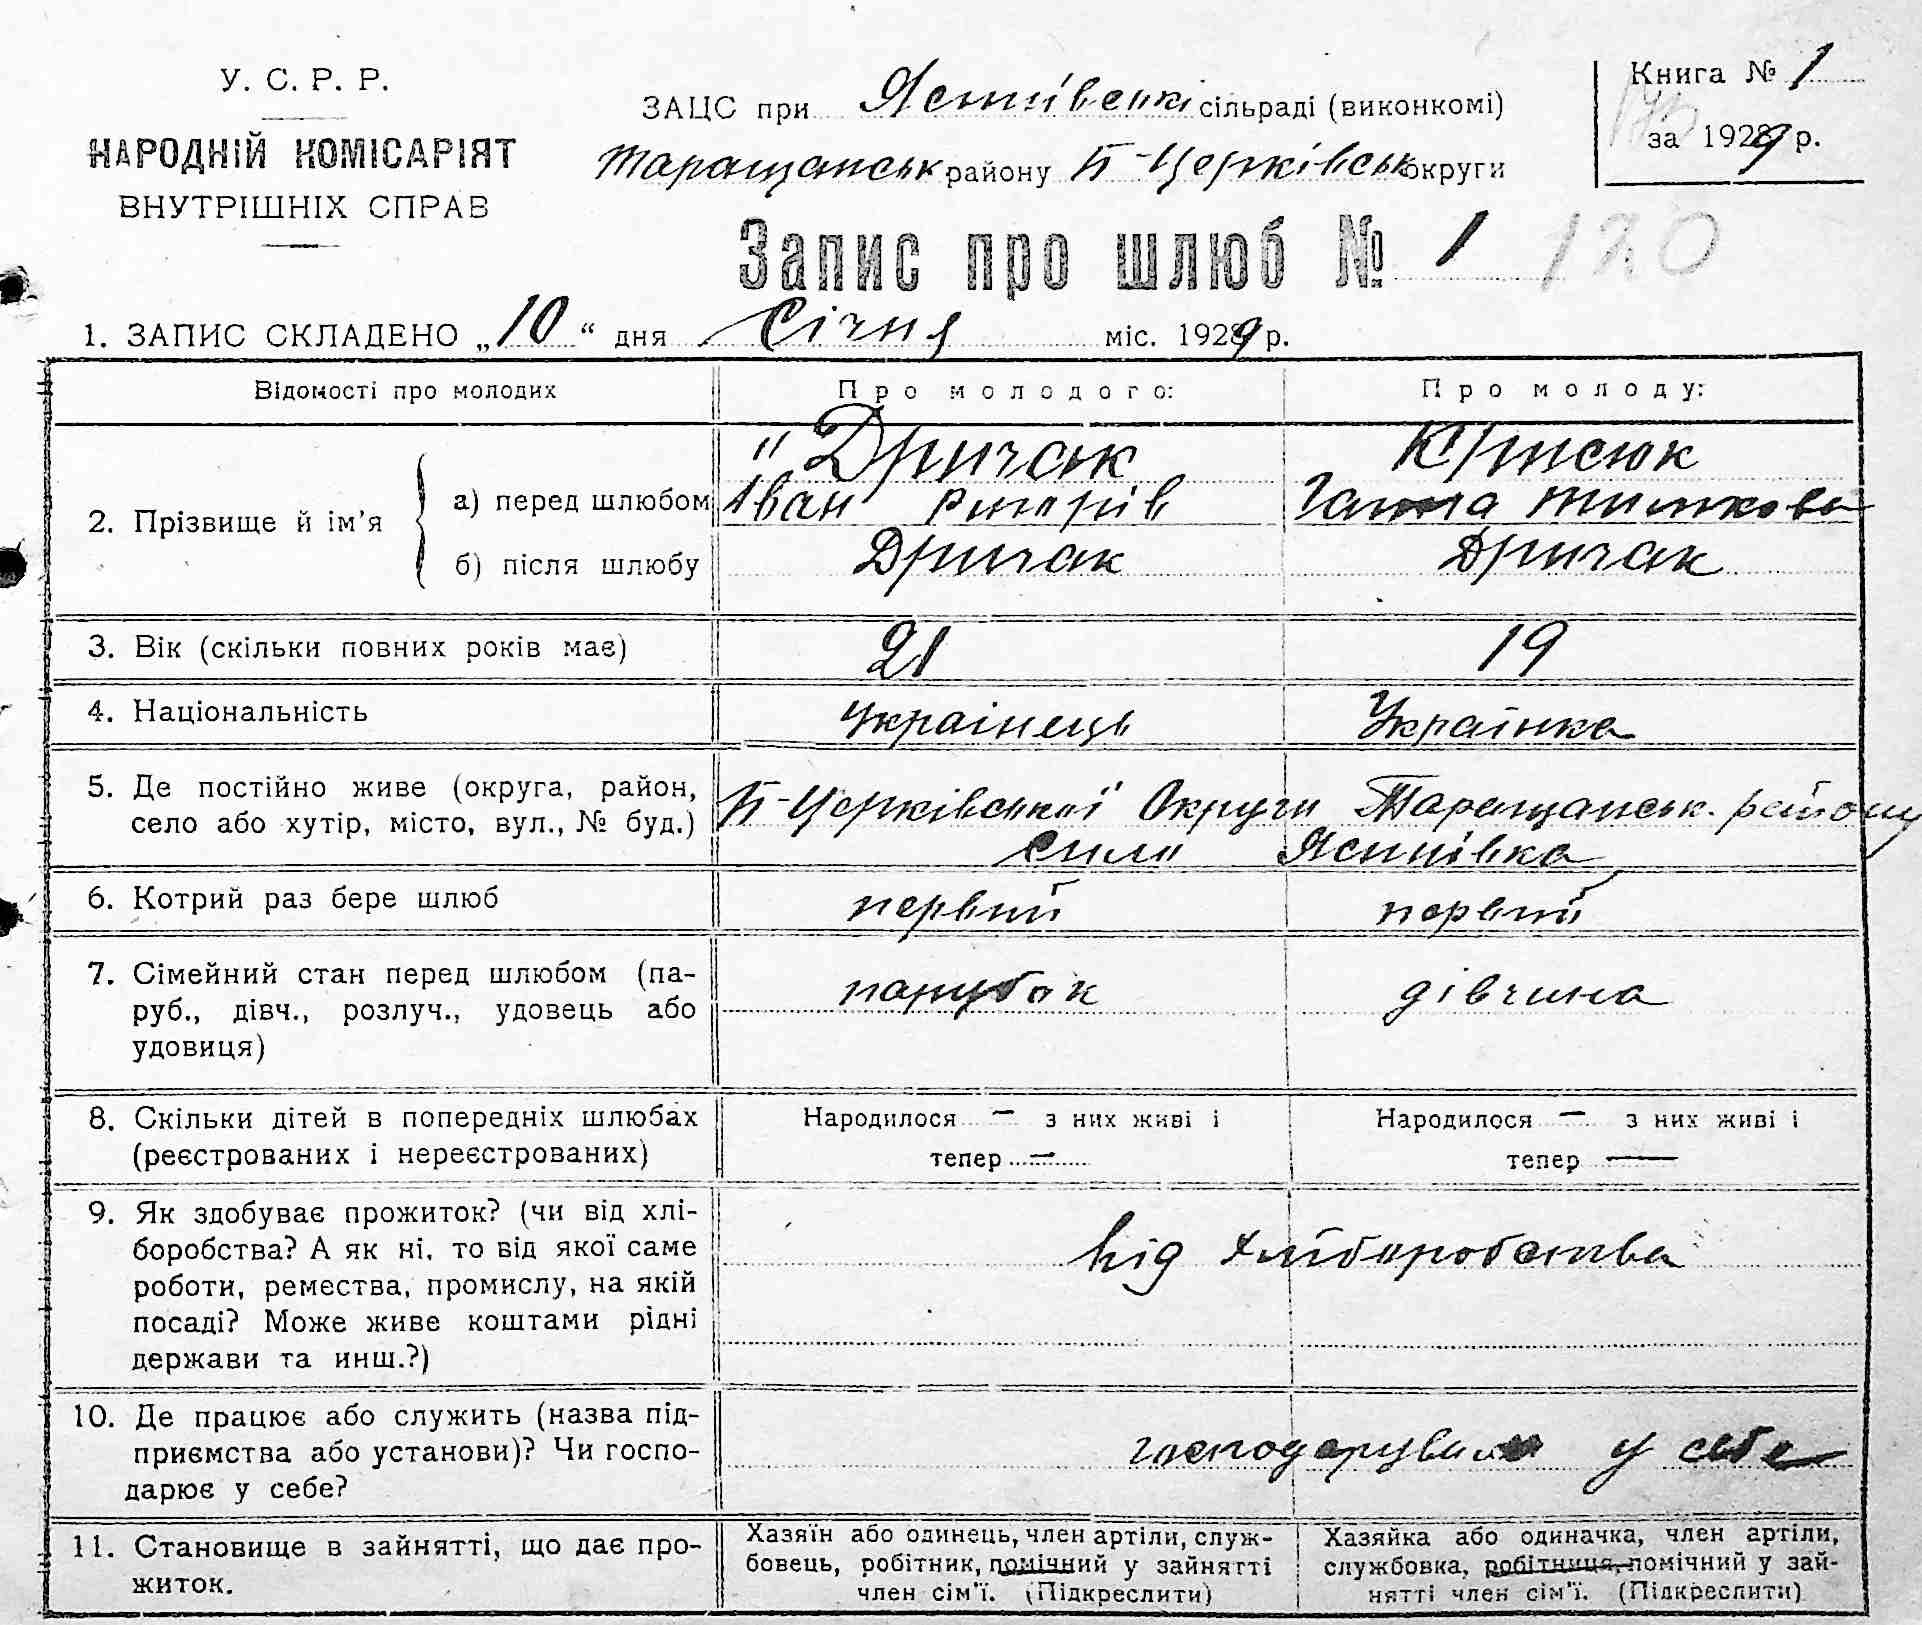 У. С. Р. Р.
НАРОДНІЙ КОМІСАРІЯТ
ВНУТРІШНІХ СПРАВ
ЗАЦС при Ясинівські сільраді (виконкомі)
Таращанськ району Б-Церківськ округи
Книга № 1
за 1929 р.
Запис про шлюб № 1 120
1. ЗАПИС СКЛАДЕНО „10“ дня Січня міс. 1929 р.
Відомості про молодих Про молодого: Про молоду:
2. Прізвище й ім’я
а) перед шлюбом
" Дричак
Іван
Крисюк
Ганна Тимкова
б) після шлюбу Дричак Дричак
3. Вік (скільки повних років має) 21 19
4. Національність українець Українка
5. Де постійно живе (округа, район,
село або хутір, місто, вул., № буд.)
Б-Церківської Округи Таращанськ. району
село Ясинівка
6. Котрий раз бере шлюб первий первий
7. Сімейний стан перед шлюбом (па-
руб., дівч., розлуч., удовець або
удовиця)
парубок дівчина
8. Скільки дітей в попередніх шлюбах
(реєстрованих і нереєстрованих)
Народилося — з них живі і
тепер —
Народилося — з них живі і
тепер —
9. Як здобуває прожиток? (чи від хлі-
боробства? А як ні, то від якої саме
роботи, ремества, промислу, на якій
посаді? Може живе коштами рідні
держави та инш.?)
від хліборобства
10. Де працює або служить (назва під-
приємства або установи)? Чи госпо-
дарює у себе?
у себе
11. Становище в зайнятті, що дає про-
житок.
Хазяїн або одинець, член артіли, служ-
бовець, робітник, помічний у зайнятті
член сім’ї. (Підкреслити)
Хазяйка або одиначка, член артіли,
службовка, робітниця, помічний у зай-
нятті член сім’ї. (Підкреслити)